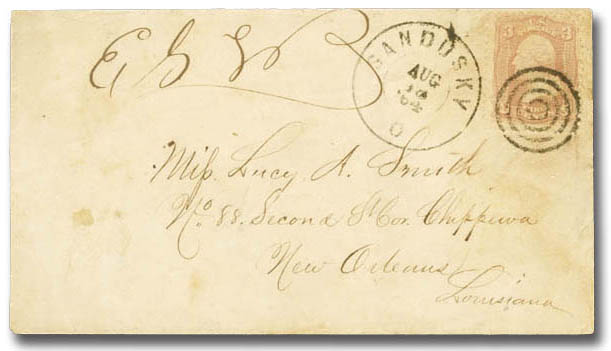 E S W
SANDUSKY
AUG
'64
O
3 3
Miſs. Lucy A. Smith
No. 88. Second St Cor. Chippewa
New Orleans
Louisiana